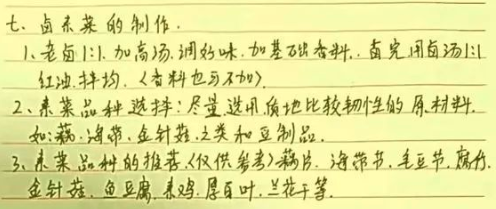 七、卤素菜的制作.
1、老卤1:1.加高汤.调好味.加基础香料.卤完用卤汤1:1
红油.拌均.〈香料也可不加〉.
2、素菜品种选择:尽量选用质地比较韧性的原材料.
如:藕.海带.金针菇.之类和豆制品.
3、素菜品种的推荐〈仅供参考〉藕片.海带节.毛豆节.腐竹.
金针菇.鱼豆腐.素鸡.厚百叶.兰花干等.